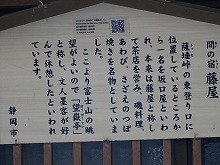 間の宿 藤屋
薩埵峠の東登り口に
位置しているところか
ら一名を坂口屋といわ
れ、本来は藤屋と称し
て茶店を営み、磯料理、
あわび、さざえのつぼ
焼きを名物としてい
した。
ここより富士山の眺
望がよいので「望嶽亭」
と称し、文人墨客が好
んで休憩したといわれ
ています。
静岡市